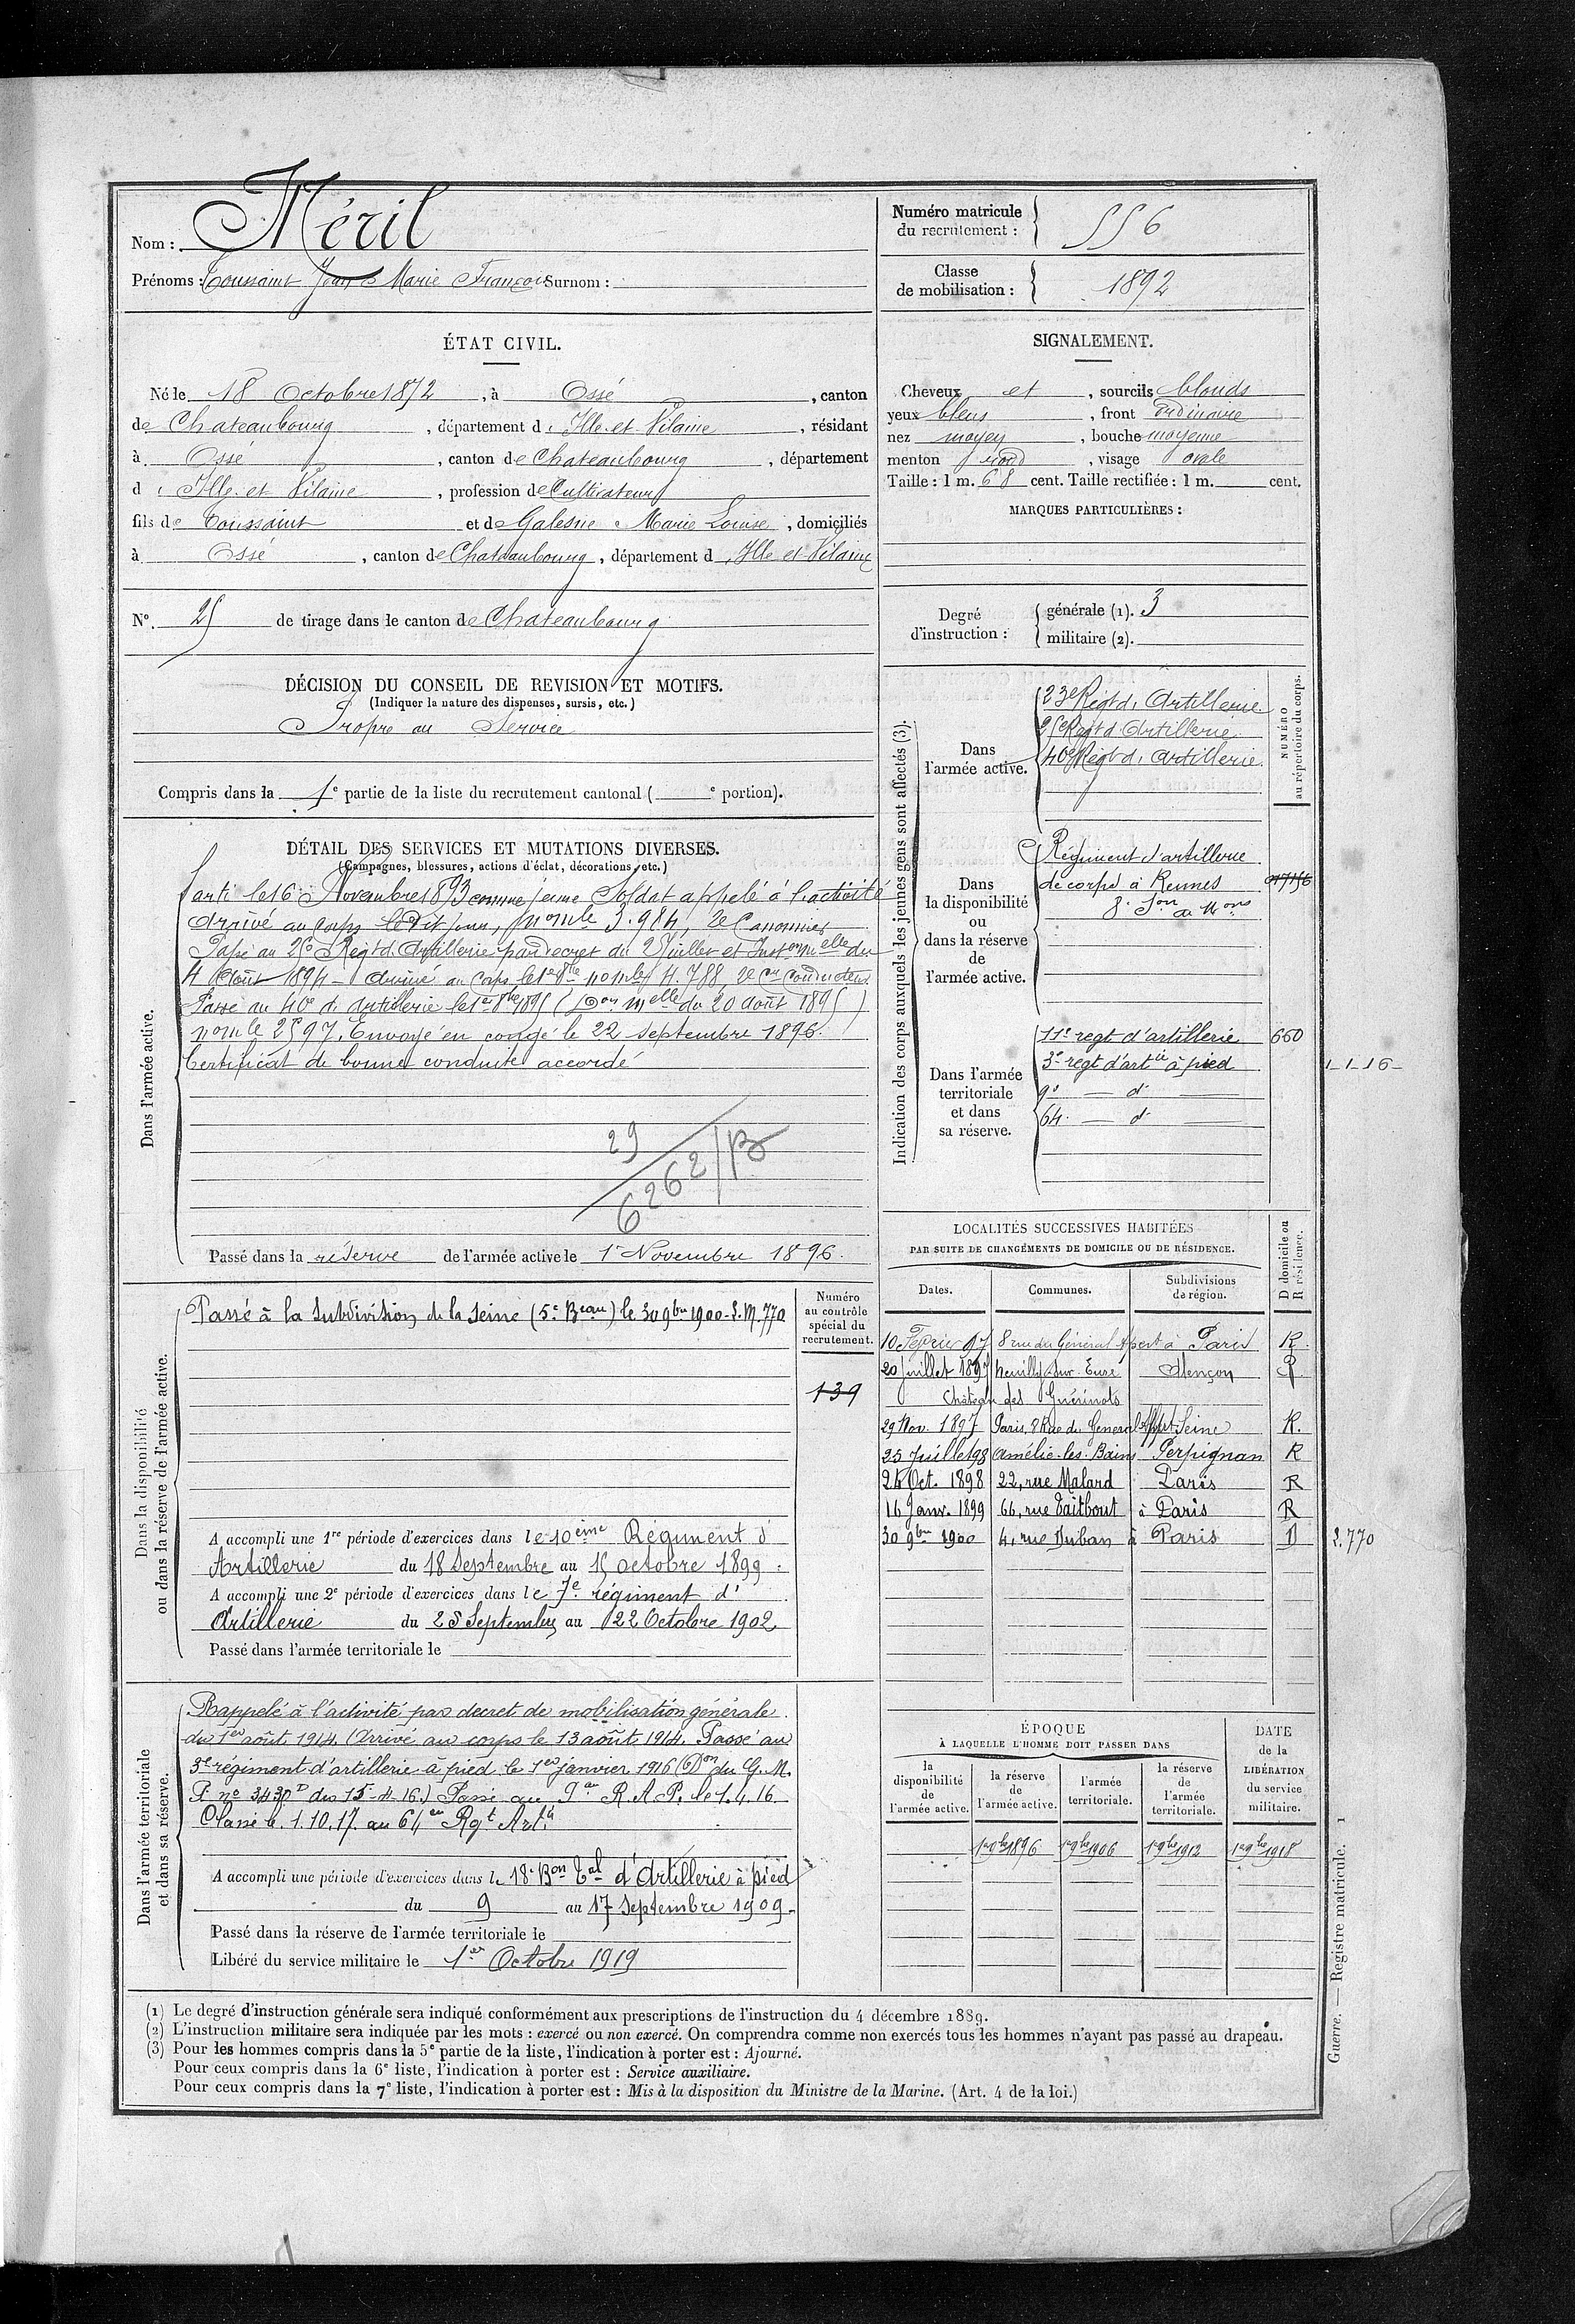 Nom : Méril
Prénoms : Toussaint Jean Marie François Surnom :
Numéro matricule du recrutement : 556
Classe de mobilisation : 1892
ÉTAT CIVIL.
Né le 18 Octobre 1872, à Ossé, canton
de Chateaubourg, département d'Ille et Vilaine, résidant
à Ossé, canton de Chateaubourg, département
d'Ille et Vilaine, profession de Cultivateur
fils de Toussaint et de Galesne Marie Louise, domiciliés
à Ossé, canton de Chateaubourg, département d'Ille et Vilaine
N° 25 de tirage dans le canton de Chateaubourg
SIGNALEMENT.
Cheveux et, sourcils blonds
yeux bleus, front ordinaire
nez moyen, bouche moyenne
menton rond, visage ovale
Taille : 1 m. 68 cent. Taille rectifiée : 1 m. cent.
MARQUES PARTICULIÈRES :
Degré d'instruction :
générale (1). 3
militaire (2).
DÉCISION DU CONSEIL DE REVISION ET MOTIFS.
(Indiquer la nature des dispenses, sursis, etc.)
Propre au Service
Compris dans la 1e partie de la liste du recrutement cantonal ( e portion).
DÉTAIL DES SERVICES ET MUTATIONS DIVERSES.
(Campagnes, blessures, actions d'éclat, décorations, etc.)
Dans l'armée active.
Parti le 16 Novembre 1893 comme jeune Soldat appelé à l'activité
Arrivé au Corps le Dit jour, nom le 3.984, 2e Canonnier
Passé au 25e Regt d'Artillerie par decret du 25 Juillet et Instron melle du
4 Août 1894 - Arrivé au Corps le 1er 8bre no mle 4.788, 2e cr Conducteur
Passé au 40e d'Artillerie le 1er 8bre 1895 (Don melle du 20 août 1895)
no mle 2597. Envoyé en congé le 22 septembre 1896.
Certificat de bonne conduite accordé
29
6262/B
Passé dans la réserve de l'armée active le 1er Novembre 1896.
Indication des corps auxquels les jeunes gens sont affectés (3).
NUMÉRO au répertoire du corps.
Dans l'armée active.
23e Regt d'Artillerie
25e Regt d'Artillerie
40e Regt d'Artillerie
Dans la disponibilité ou dans la réserve de l'armée active.
Régiment d'artillerie
de corps à Rennes
8e Son de Mons
Dans l'armée territoriale et dans sa réserve.
11e regt d'artillerie 660
3e regt d'artie à pied 1-1-16-
9e — d°
64e — d°
Dans la disponibilité ou dans la réserve de l'armée active.
Passé à la Subdivision de la Seine (5e Beau) le 30 9bre 1900 - S.M. 770
Numéro au contrôle spécial du recrutement.
139
A accompli une 1re période d'exercices dans le 10ème Régiment d'
Artillerie du 18 Septembre au 15 octobre 1899.
A accompli une 2e période d'exercices dans le 7e régiment d'
Artillerie du 25 Septembre au 22 Octobre 1902
Passé dans l'armée territoriale le
LOCALITÉS SUCCESSIVES HABITÉES
PAR SUITE DE CHANGEMENTS DE DOMICILE OU DE RÉSIDENCE.
Dates. Communes. Subdivisions de région. D domicile ou R résidence.
10 Fevrier 97 8 rue du Général Appert à Paris R.
20 Juillet 1897 Neuilly sur Eure Alençon R
Château des Guérinots
29 Nov. 1897 Paris, 8 Rue du General Appert Seine R.
25 Juillet 98 Amélie-les-Bains Perpignan R
24 Oct. 1898 22, rue Malard Paris R
16 Janv. 1899 66, rue Taitbout à Paris R
30 9bre 1900 4, rue Duban à Paris D 2.770
Dans l'armée territoriale et dans sa réserve.
Rappelé à l'activité par decret de mobilisation générale
du 1er août 1914. Arrivé au corps le 13 août 1914. Passé au
3e régiment d'artillerie à pied le 1er janvier 1916 (Don du G.M.
P. no 3430D du 15-4-16.) Passé au 9e R.A.P. le 1.4.16.
Classé le 1.10.17. au 64e Rgt Artie
A accompli une période d'exercices dans le 18e Bon Tal d'Artillerie à pied
du 9 au 17 Septembre 1909.
Passé dans la réserve de l'armée territoriale le
Libéré du service militaire le 1er Octobre 1919
ÉPOQUE
À LAQUELLE L'HOMME DOIT PASSER DANS
la disponibilité de l'armée active. la réserve de l'armée active. l'armée territoriale. la réserve de l'armée territoriale. DATE de la LIBÉRATION du service militaire.
1er 9bre 1896 1er 9bre 1906 1er 9bre 1912 1er 9bre 1918
(1) Le degré d'instruction générale sera indiqué conformément aux prescriptions de l'instruction du 4 décembre 1889.
(2) L'instruction militaire sera indiquée par les mots : exercé ou non exercé. On comprendra comme non exercés tous les hommes n'ayant pas passé au drapeau.
(3) Pour les hommes compris dans la 5e partie de la liste, l'indication à porter est : Ajourné.
Pour ceux compris dans la 6e liste, l'indication à porter est : Service auxiliaire.
Pour ceux compris dans la 7e liste, l'indication à porter est : Mis à la disposition du Ministre de la Marine. (Art. 4 de la loi.)
Guerre. — Registre matricule. 1